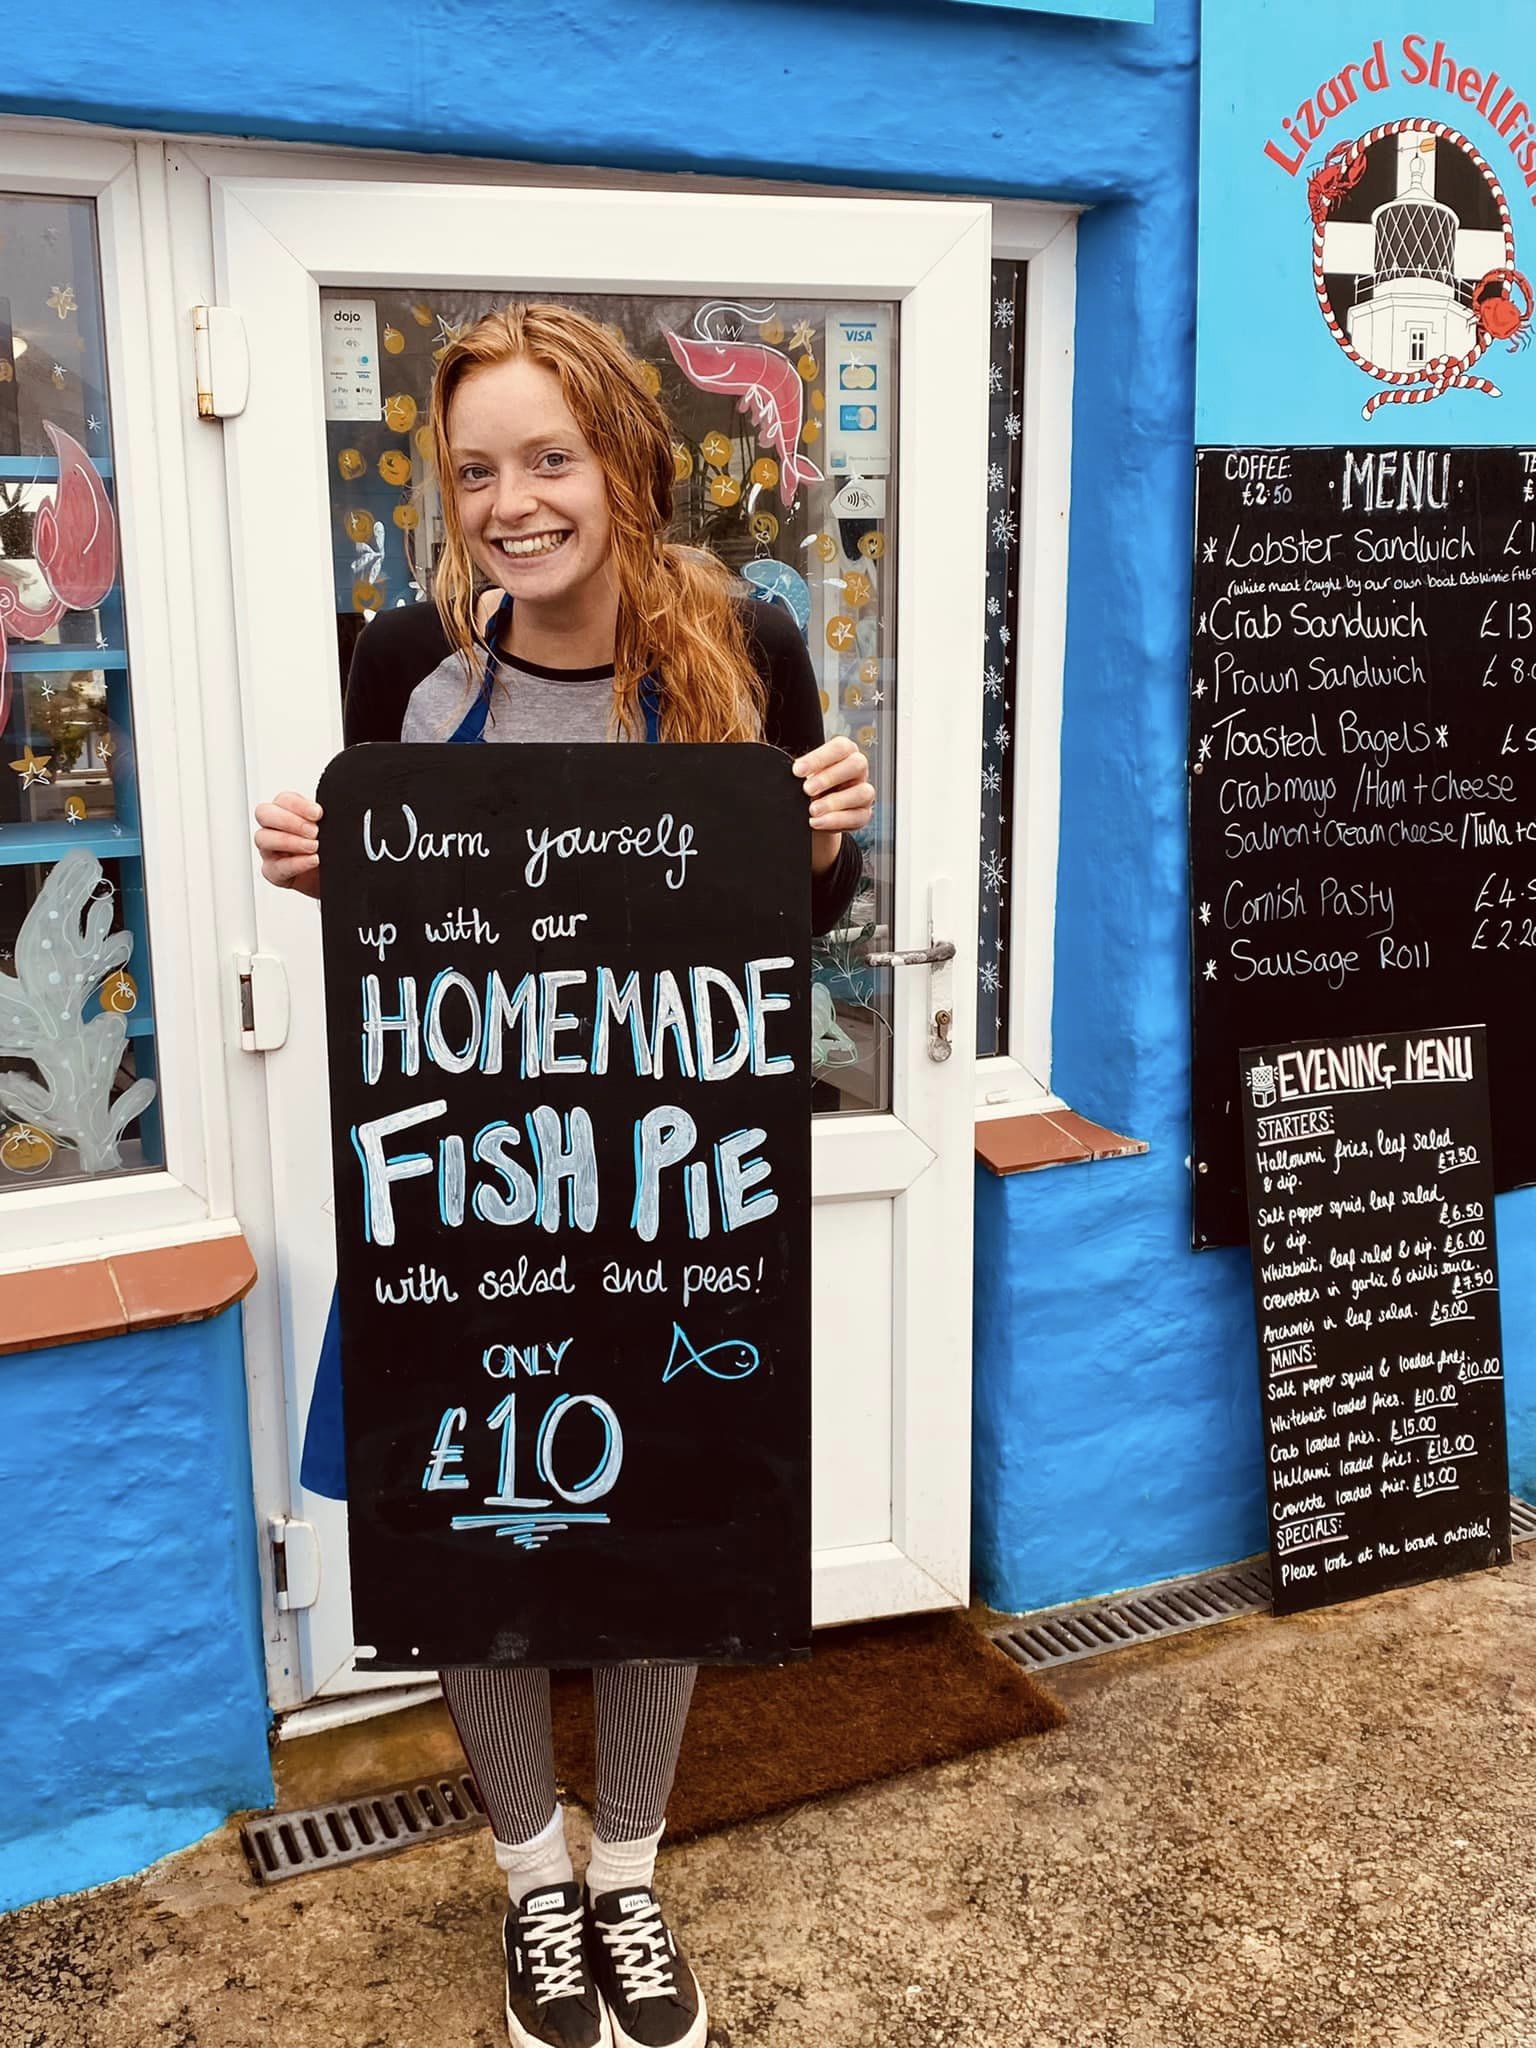 Lizard Shellfish
dojo
VISA
Pay
Pay
VISA
COFFEE
£2.50
• MENU •
* Lobster Sandwich
(White meat caught by our own boat BobWinnie FH6
* Crab Sandwich £13
* Prawn Sandwich £8.
* Toasted Bagels *
Crab mayo / Ham + Cheese
Salmon + Cream cheese / Tuna +
* Cornish Pasty £4.
* Sausage Roll £2.20
Warm yourself
up with our
HOMEMADE
FISH PIE
with salad and peas!
ONLY
£10
EVENING MENU
STARTERS:
Halloumi fries, leaf salad
& dip. £7.50
Salt pepper squid, leaf salad
& dip. £6.50
Whitebait, leaf salad & dip. £6.00
Crevettes in garlic & chilli sauce.
£7.50
Anchovies in leaf salad. £5.00
MAINS:
Salt pepper squid & loaded fries.
£10.00
Whitebait loaded fries. £10.00
Crab loaded fries. £15.00
Halloumi loaded fries. £12.00
Crevette loaded fries. £13.00
SPECIALS:
Please look at the board outside!
ellesse
ellesse